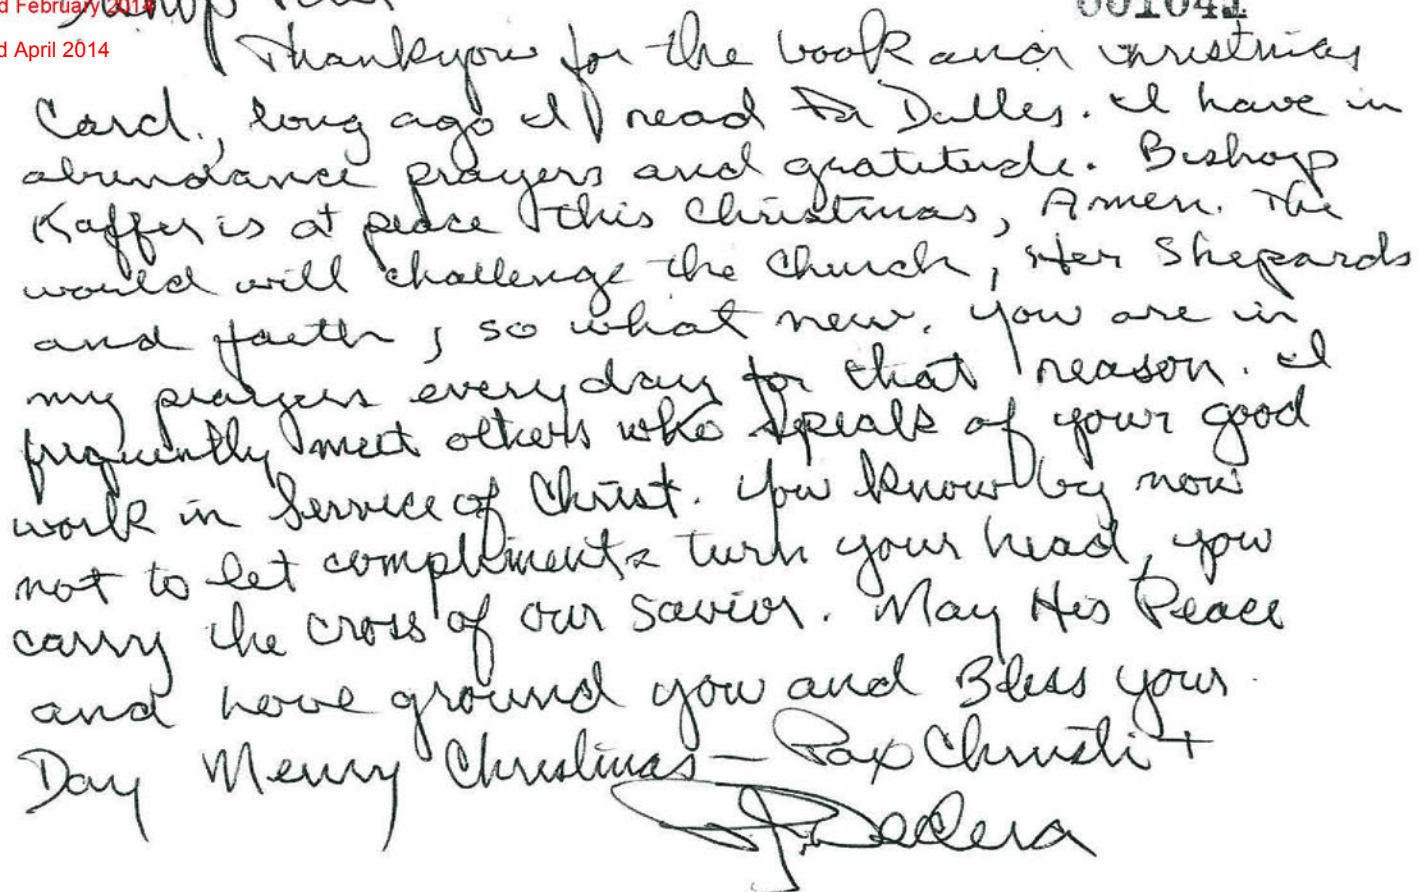 d February 2014
001041
d April 2014
Thankyou for the book and Christmas
Card., long ago I read Fr Dulles. I have in
abundance prayers and gratitude. Bishop
Kaffer is at peace this Christmas, Amen. The
world will challenge the Church, Her Shepards
and faith, so what new. You are in
my prayers everyday for that reason. I
frequently meet others who speak of your good
work in Service of Christ. You know by now
not to let compliments turn your head, you
carry the cross of our Savior. May His Peace
and Love ground you and Bless your
Day Merry Christmas — Pax Christi +